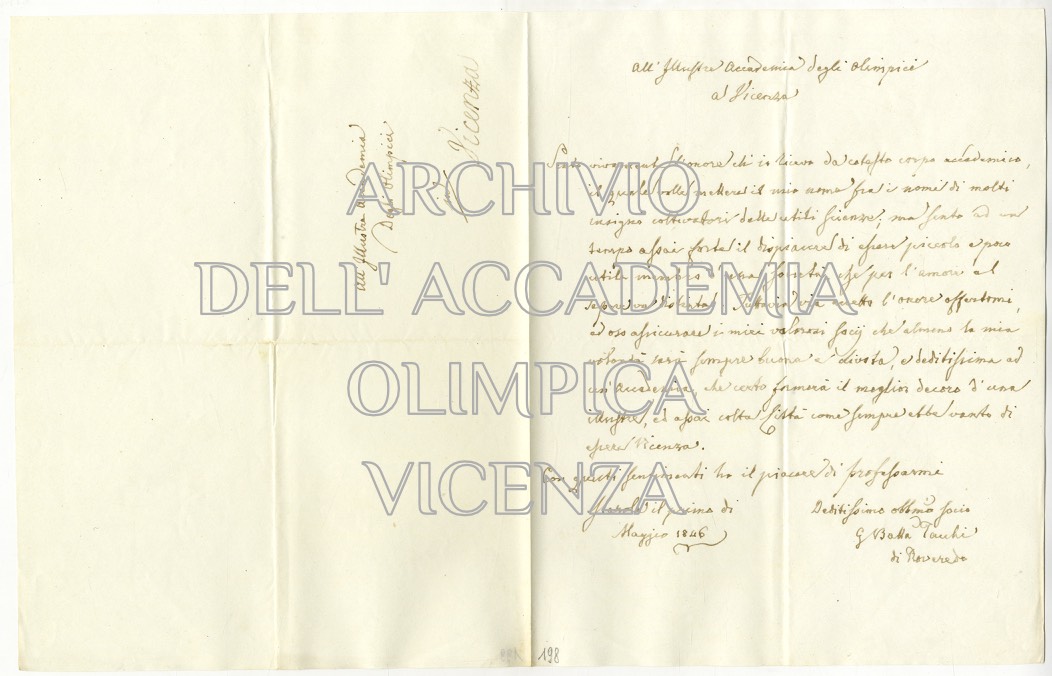 All' Illustre Accademia
Degli Olimpici
Vicenza
All' Illustre Accademia degli Olimpici
a Vicenza
Sento vivamente l'onore ch' io ricevo da cotesto corpo accademico,
il quale volle mettere il mio nome fra i nomi di molti
insigni coltivatori delle utili scienze; ma sento ad un
tempo assai forte il dispiacere di essere piccolo e poco
utile membro d'una società che per l'amore al
sapere va distinta. Tuttavia accetto l'onore offertomi,
ed oso assicurare i miei valorosi socij che almeno la mia
volontà sarà sempre buona e divota, e deditissima ad
un' Accademia, che certo formerà il meglior decoro d'una
illustre, ed assai colta Città come sempre ebbe vanto di
essere Vicenza.
Con questi sentimenti ho il piacere di professarmi
il primo di
Maggio 1846
Deditissimo obbmo socio
G Batta Tacchi
di Roveredo
198
ARCHIVIO
DELL' ACCADEMIA
OLIMPICA
VICENZA